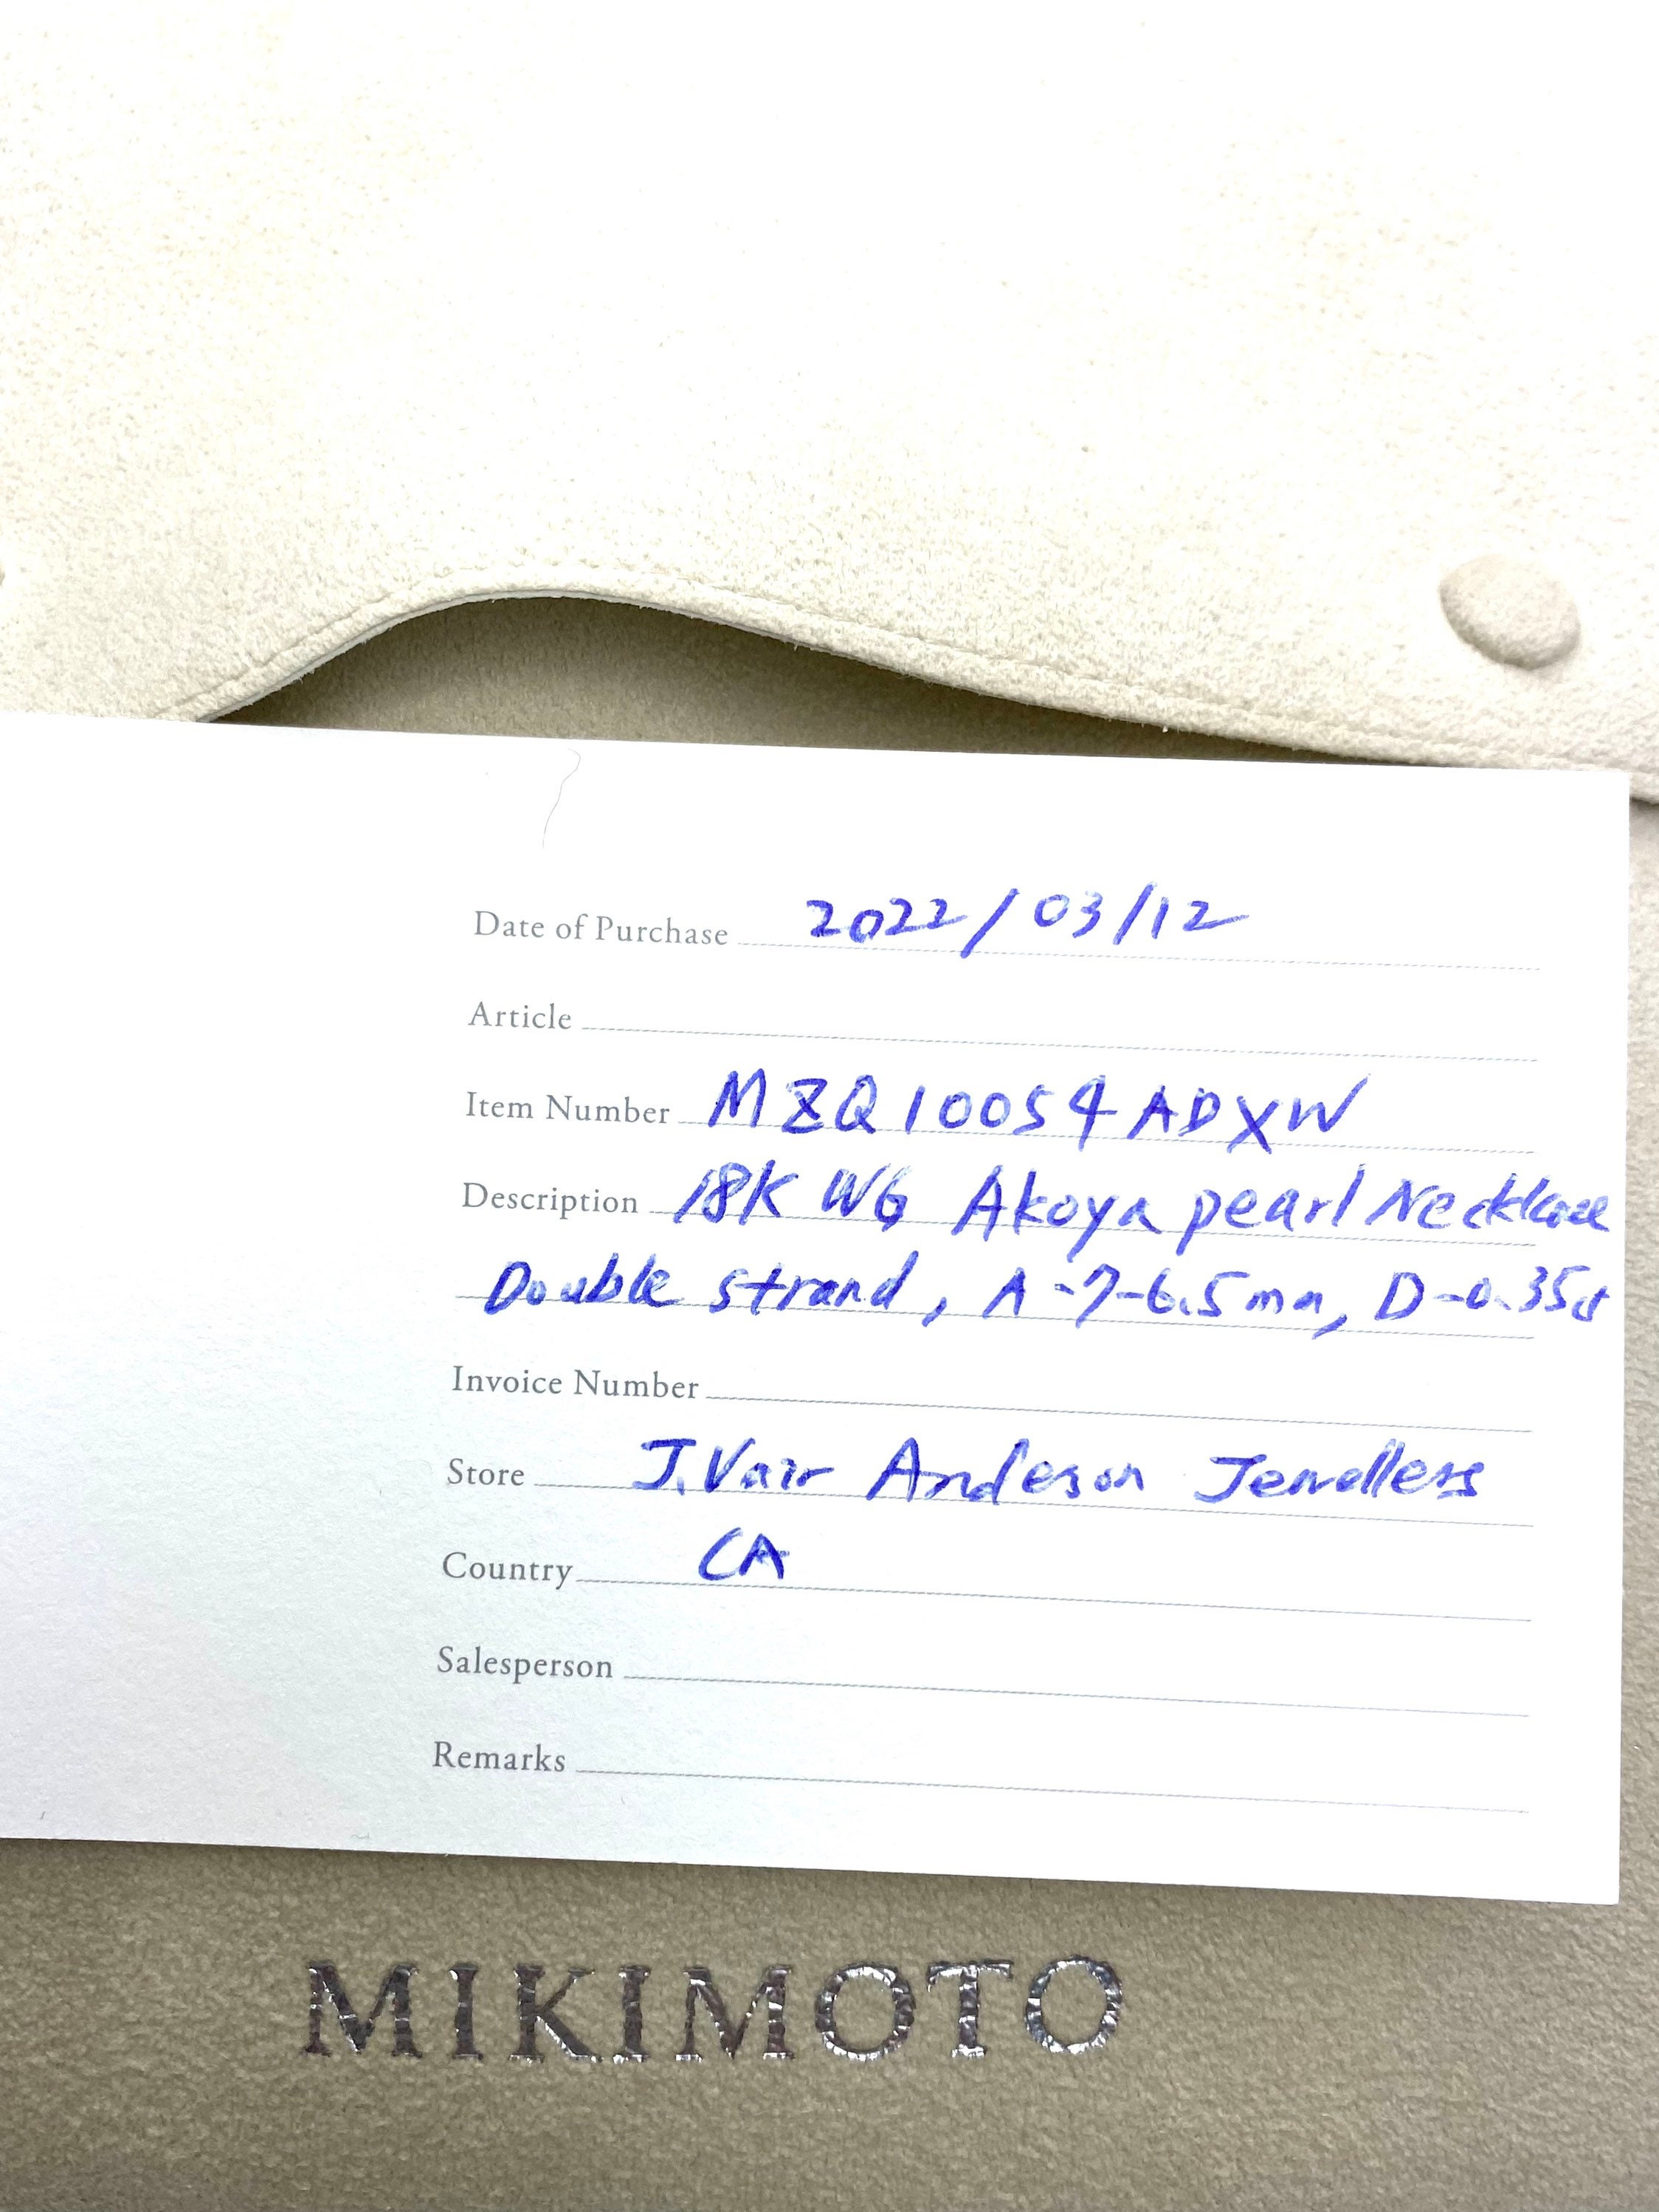 Date of Purchase 2022/03/12
Article
Item Number MZQ10054ADXW
Description 18K WG Akoya pearl Necklace
Double strand, A-7-6.5mm, D-0.35ct
Invoice Number
Store J.Vair Anderson Jewellers
Country CA
Salesperson
Remarks
MIKIMOTO